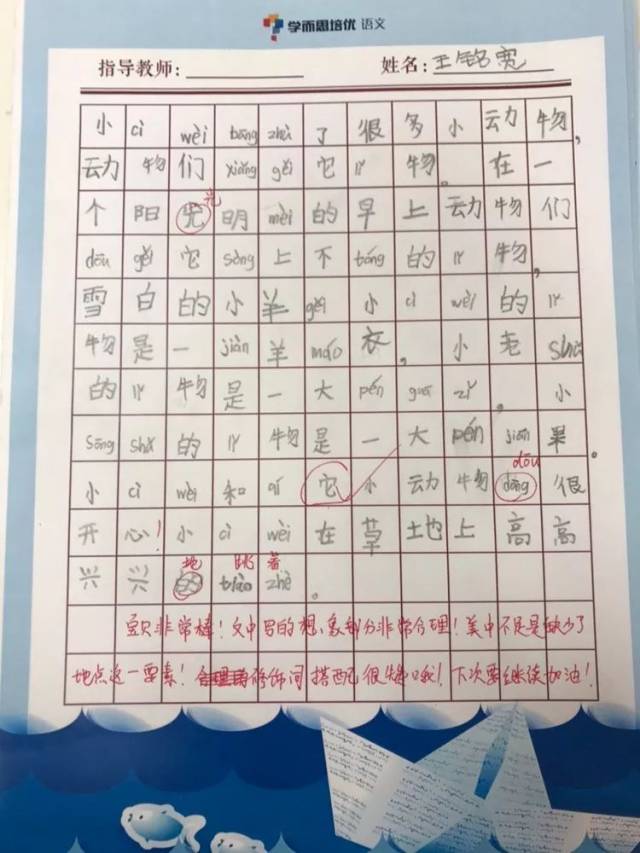 学而思培优 语文
指导教师: 姓名: 王铭宽
小 cì wèi bāng zhù 了 很 多 小 动 物,
动 物 们 xiǎng gěi 它 lǐ 物。 在 一
个 阳 光 光 明 mèi 的 早 上 动 物 们
dōu gěi 它 sòng 上 不 tóng 的 lǐ 物,
雪 白 的 小 羊 gěi 小 cì wèi 的 lǐ
物 是 一 jiàn 羊 máo 衣, 小 老 shǔ
的 lǐ 物 是 一 大 pén guā zǐ。 小
sōng shǔ 的 lǐ 物 是 一 大 pén jiān 果。
小 cì wèi 和 qí 它 小 动 物 dōng dōu 很
开 心! 小 cì wèi 在 草 地 上 高 高
兴 兴 的 地 tiào 跳 zhè 着。
非常棒! 文中 的想象部分非常合理! 美中不足是缺少了
地点这一要素! 修饰词搭配很 哦! 下次要继续加油!